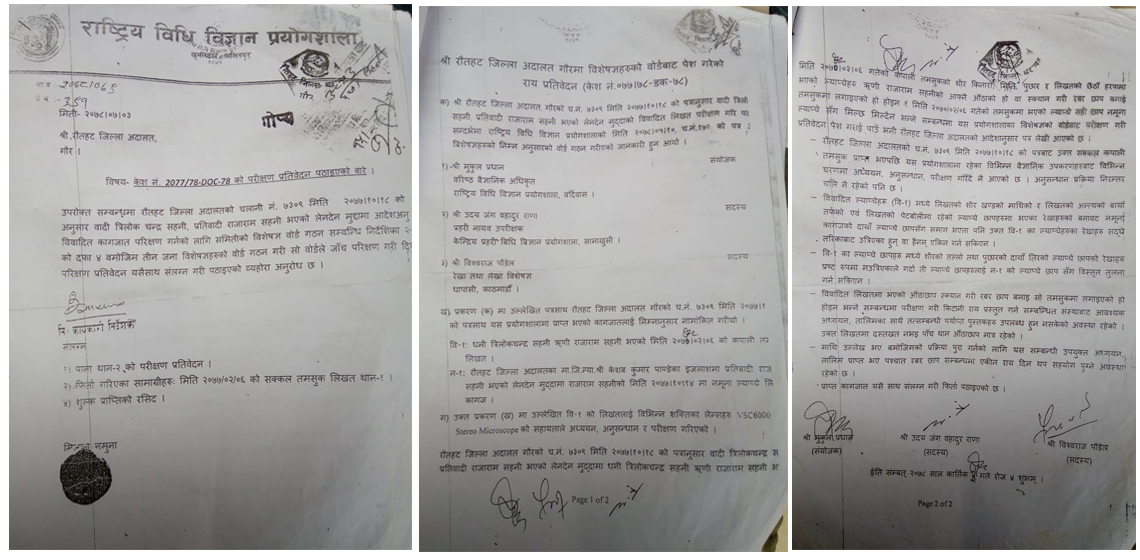 राष्ट्रिय विधि विज्ञान प्रयोगशाला
मिती- २०७८/०७/०३
श्री रौतहट जिल्ला अदालत,
गौर ।
गोप्य
विषय- केश नं. 2077/78-DOC-78 को परीक्षण प्रतिवेदन पठाइएको बारे ।
उपरोक्त सम्बन्धमा रौतहट जिल्ला अदालतको चलानी नं. ७३०९ मिति २०७७।१०।१८ को
अनुसार वादी त्रिलोक चन्द्र सहनी, प्रतिवादी राजाराम सहनी भएको लेनदेन मुद्दामा आदेशअनु
विवादित कागजात परिक्षण गर्नको लागि समितीको विशेषज्ञ वोर्ड गठन सम्बन्धि निर्देशिका २
को दफा ४ बमोजिम तीन जना विशेषज्ञहरुको वोर्ड गठन गरी सो वोर्डले जाँच परिक्षण गरी दि
परिक्षण प्रतिवेदन यसैसाथ संलग्न गरी पठाइएको व्यहोरा अनुरोध छ ।
नि. कार्यकारी निर्देशक
संलग्न
१) पाना थान-२ को परीक्षण प्रतिवेदन ।
२) फिर्ता गरिएका सामाग्रीहरु: मिति २०७७/०२/०६ को सक्कल तमसुक लिखत थान-१ ।
४) शुल्क प्राप्तिको रसिद ।
श्री रौतहट जिल्ला अदालत गौरमा विशेषज्ञहरुको वोर्डबाट पेश गरेको
राय प्रतिवेदन (केश नं.०७७/७८-डक-७८)
क) श्री रौतहट जिल्ला अदालत गौरको च.नं. ७३०९ मिति २०७७।१०।१८ को पत्रानुसार वादी त्रिलो
सहनी, प्रतिवादी राजाराम सहनी भएको लेनदेन मुद्दाको विवादित लिखत परीक्षण गरि
सन्दर्भमा राष्ट्रिय विधि विज्ञान प्रयोगशालाको मिति
विशेषज्ञहरुको निम्न अनुसारको वोर्ड गठन गरीएको जानकारी हुन आयो ।
१) श्री मुकुल प्रधान
संयोजक
वरिष्ठ वैज्ञानिक अधिकृत
राष्ट्रिय विधि विज्ञान प्रयोगशाला, बर्दिवास ।
२) श्री उदय जंग वहादुर राणा
सदस्य
प्रहरी नायव उपरीक्षक
केन्द्रिय प्रहरी विधि विज्ञान प्रयोगशाला, सामाखुसी ।
३) श्री विश्वराज पौडेल
सदस्य
रेखा तथा लेखा विशेषज्ञ
धापासी, काठमाडौं ।
ख) प्रकरण (क) मा उल्लेखित पत्रसाथ रौतहट जिल्ला अदालत गौरको च.नं. ७३०९ मिति २०७७।१
को पत्रसाथ यस प्रयोगशालामा प्राप्त भएको कागजातलाई निम्नानुसार नामांकित गरीयो ।
वि-१: धनी त्रिलोकचन्द्र सहनी ऋणी राजाराम सहनी भएको मिति २०७७/०२/०६ को कपाली तम
लिखत ।
न-१: रौतहट जिल्ला अदालतका मा.जि.न्या.श्री केशब कुमार पाण्डेका इजलाशमा प्रतिवादी राज
सहनी भएको लेनदेन मुद्दामा राजाराम सहनीको मिति २०७७।१०।१४ मा नमूना ल्याप्चे
कागज ।
ग) उक्त प्रकरण (ख) मा उल्लेखित वि-१ को लिखतलाई विभिन्न शक्तिका लेन्सहरु VSC6000
Stereo Microscope को सहायताले अध्ययन, अनुसन्धान र परीक्षण गरिएको ।
रौतहट जिल्ला अदालत गौरको च.नं. ७३०९ मिति २०७७।१०।१८ को पत्रानुसार वादी त्रिलोकचन्द्र स
प्रतिवादी राजाराम सहनी भएको लेनदेन मुद्दामा धनी त्रिलोकचन्द्र सहनी ऋणी राजाराम सहनी भ
Page 1 of 2
मिति २०७७/०२/०६ गतेको कपाली तमसुकको शीर किनारा, मिति, पुछार र लिखतको छेउँ हरफमा
भएको ल्याप्चेहरु ऋणी राजाराम सहनीको आफ्नै औंठाको हो वा स्क्यान गरी रबर छाप बनाई
तमसुकमा लगाइएको हो होइन र मिति २०७७/०२/०६ गतेको तमसुकमा भएको ल्याप्चे सही छाप नमूना
ल्याप्चे सँग मिल्छ मिल्दैन भन्ने सम्बन्धमा यस प्रयोगशालाका विशेषज्ञको वोर्डबाट परीक्षण गरी
प्रतिवेदन पेश गराई पाउँ भनी रौतहट जिल्ला अदालतको आदेशानुसार पत्र लेखी आएको छ ।
– रौतहट जिल्ला अदालतको च.नं. ७३०९ मिति २०७७।१०।१८ को पत्रबाट उक्त सक्कल कपाली
तमसुक प्राप्त भएपछि यस प्रयोगशालामा रहेका विभिन्न वैज्ञानिक उपकरणहरुबाट विभिन्न
चरणमा अध्ययन, अनुसन्धान, परीक्षण गरिँदै नै आएको छ । अनुसन्धान प्रक्रिया निरन्तर
चलि नै रहेको पनि छ ।
– विवादित ल्याप्चेहरु (वि-१) मध्ये लिखतको शीर खण्डको माथिको र लिखतको अन्त्यको बायाँ
तर्फको एवं लिखतको पेटबोलीमा रहेको ल्याप्चे छापहरुमा भएका रेखाहरुको बनावट नमूना
कागजको दायाँ ल्याप्चे छापसँग समान भएता पनि उक्त वि-१ का ल्याप्चेहरुका रेखाहरु सद्दे
तरिकाबाट उत्रिएका हुन् वा हैनन् एकिन गर्न सकिएन ।
– वि-१ का ल्याप्चे छापहरु मध्ये शीरको तल्लो तथा पुछारको दायाँ तिरको ल्याप्चे छापको रेखाहरु
प्रष्ट रुपमा नउत्रिएकाले गर्दा ती ल्याप्चे छापहरुलाई न-१ को ल्याप्चे छाप सँग विस्तृत तुलना
गर्न सकिएन ।
– विवादित लिखतमा भएको औंठाछाप स्क्यान गरी रबर छाप बनाइ सो तमसुकमा लगाइएको हो
होइन भन्ने सम्बन्धमा परीक्षण गरी किटानी राय प्रस्तुत गर्न सम्बन्धित संस्थाबाट आवश्यक
अध्ययन, तालिमका साथै तत्सम्बन्धी पर्याप्त पुस्तकहरु उपलब्ध हुन नसकेको अवस्था रहेको ।
उक्त लिखतमा दस्तखत नभइ पाँच थान औंठाछाप मात्र रहेको ।
– माथि उल्लेख भए बमोजिमको प्रक्रिया पुरा गर्नको लागि यस सम्बन्धी उपयुक्त अध्ययन,
तालिम प्राप्त भए पश्चात रबर छाप सम्बन्धमा एकीन राय दिन थप सहयोग पुग्ने अवस्था
रहेको छ ।
प्राप्त कागजात यसै साथ संलग्न गरी फिर्ता पठाइएको छ ।
श्री मुकुल प्रधान
(संयोजक)
श्री उदय जंग वहादुर राणा
(सदस्य)
श्री विश्वराज पौडेल
(सदस्य)
ईति सम्बत् २०७८ साल कार्तिक गते रोज ४ शुभम् ।
Page 2 of 2